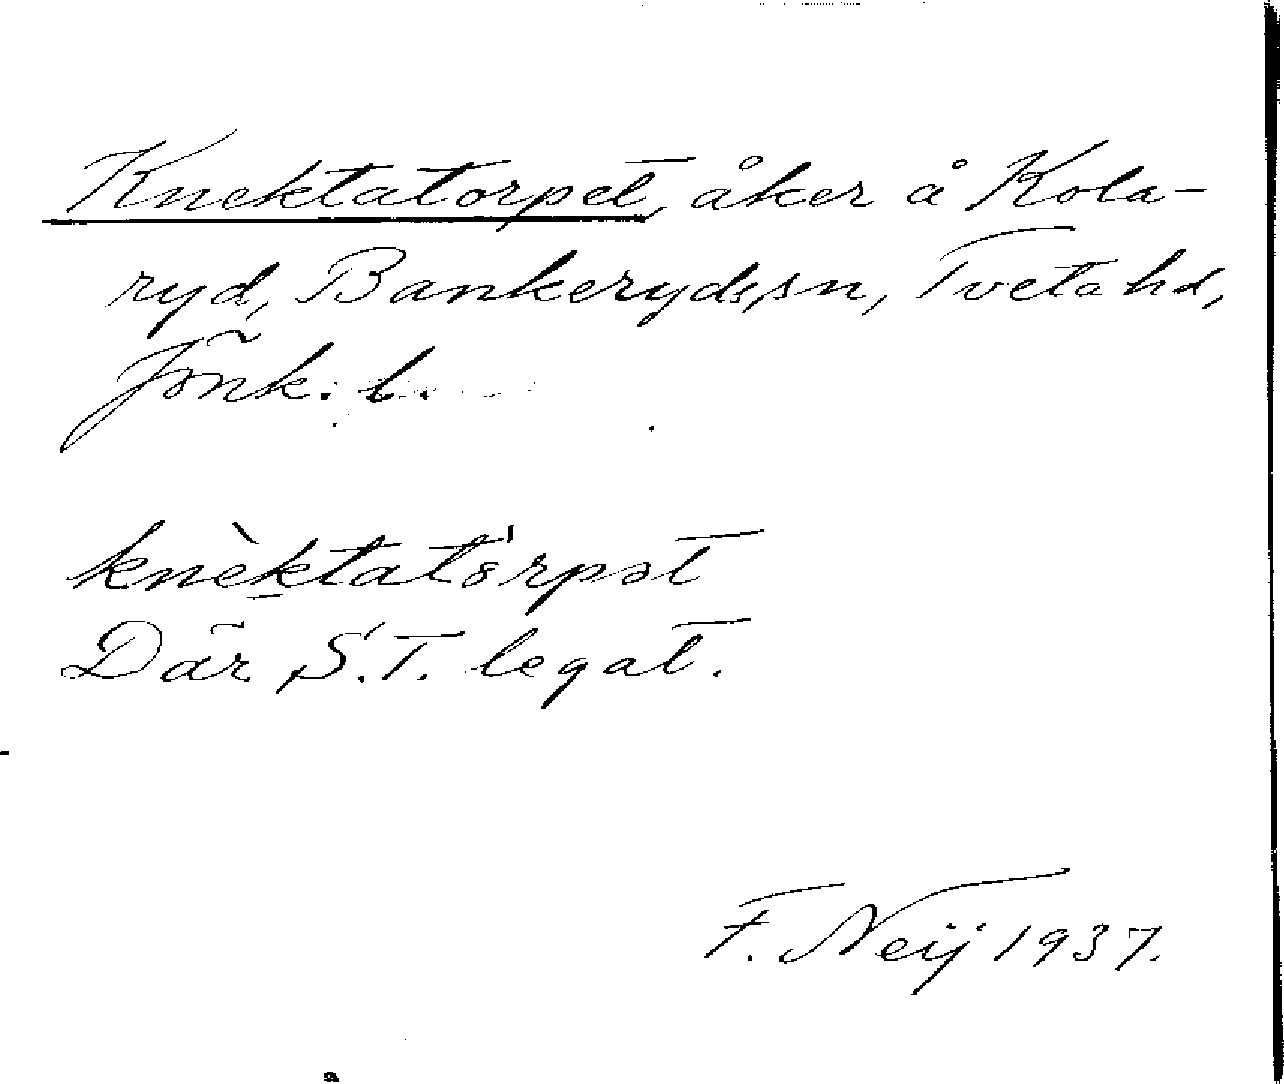 Knektatorpet, åker å Kola-
ryd, Bankeryds sn, Tveta hd,
Jönk. l.
knèktatå'rpət
Där S.T. legat.
F. Neij 1937.